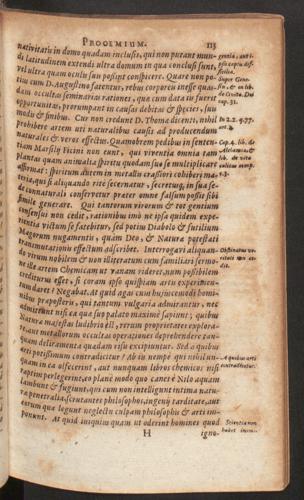 PROOEMIUM. 113
nativitatis in domo quadam inclusis, qui non putant mun-
di latitudinem extendi ultra domum in qua conclusi sunt,
vel ultra quam oculis sui possint conspicere. Quare non po-
tiu cum D. Augustino fatebitur, rebus corporeis inesse quas-
dam occultas seminarias rationes, quæ cum data in fuerit
opportunitas, prorumpant in causas debitas & species, suis
modis & finibus. Cur non credunt D. Thomæ dicenti, nihil
prohibere artem uti naturalibus causis ad producendum
naturales & veros effectus. Quamobrem pedibus in senten-
tiam Marsilij Ficini non eunt, qui viventia omnia tam
plantas quam animalia spiritu quodam suo se multiplicare
affirmat: spiritum autem in metallis crassiori cohiberi ma-
teria, qui si aliquando rite secernatur, secretusq, in sua se-
de connaturali conservetur præter omne falsum possit sibi
simile generare. Qui tantorum virorum & tot gentium
consensui non cedit, rationibus imò ne ipsa quidem expe-
rientia victum se fatebitur, sed potius Diabolo & futilium
Magorum nugamentis, quam Deo, & Naturæ potestati
transmutationum effectum adscribet. Interrogavi aliquan-
do virum nobilem & non illiteratum cum familiari sermo-
ne ille artem Chemicam ut vanam rideret, num possibilem
crediturus esset, si coram ipso quispiam artis experimen-
tum daret? Negabat. At quid agas cum hujuscemodi homi-
nibus præposteris, qui tantum vulgaria admirantur, nec
admittunt nisi ea quæ suo palato maximè sapiunt; quibus
Naturæ majestas ludibrio est, rerum proprietates explora-
tæ, aut metallorum occultas operationes deprehendere tan-
quam deliramenta quædam risu excipiuntur. Sed a quibus
arti potissimum contradicitur? Ab iis nempè qui nihil un-
quam in ea olfecerint, aut nunquam libros chemicos nisi
raptim perlegerint, eo planè modo quo canes è Nilo aquam
lambunt & fugiunt, qui cum non intelligunt intima natu-
ræ penetralia, scrutantes philosophos, ingenij tarditate, aut
eorum quæ legunt neglectu culpam philosophis & arti im-
ponunt. At quid iniquius quam ut oderint homines quod
H igno-
Super Gene-
sin, & in lib.
de Civita. Dei
cap. 31.
In 2.2. q. 77.
art. 2
Cap. 4. lib. de
lib. de vita
A quibus arti
contradicitur.
Scientia non
habet inimi-